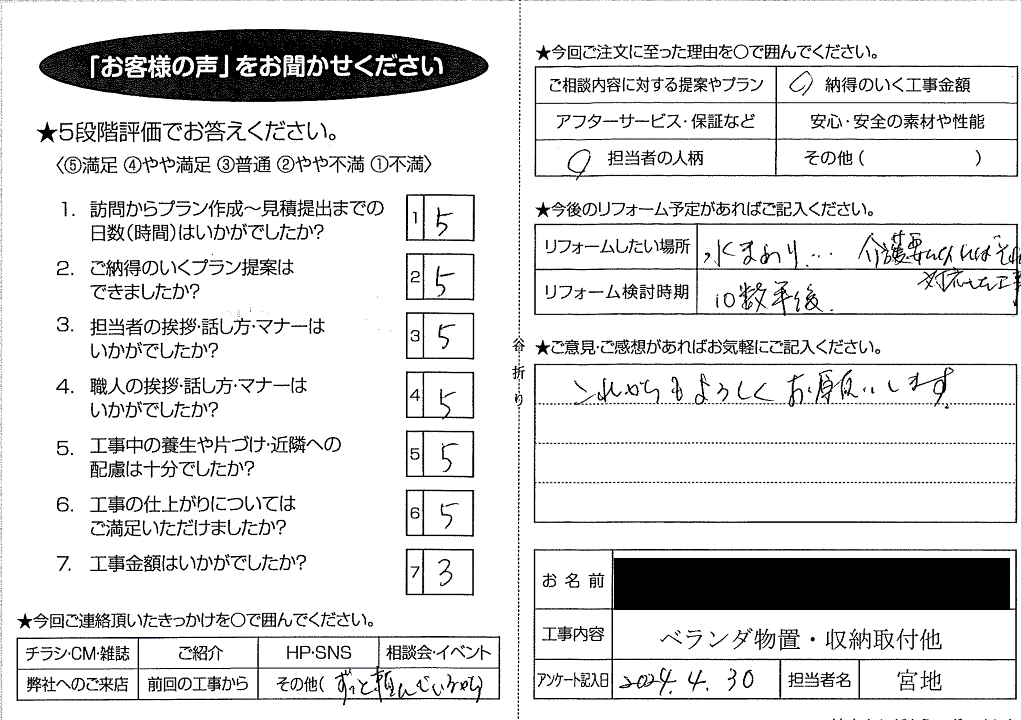 「お客様の声」をお聞かせください
★5段階評価でお答えください。
〈⑤満足 ④やや満足 ③普通 ②やや不満 ①不満〉
1. 訪問からプラン作成〜見積提出までの
日数(時間)はいかがでしたか?
1 5
2. ご納得のいくプラン提案は
できましたか?
2 5
3. 担当者の挨拶・話し方・マナーは
いかがでしたか?
3 5
4. 職人の挨拶・話し方・マナーは
いかがでしたか?
4 5
5. 工事中の養生や片づけ・近隣への
配慮は十分でしたか?
5 5
6. 工事の仕上がりについては
ご満足いただけましたか?
6 5
7. 工事金額はいかがでしたか?
7 3
★今回ご連絡頂いたきっかけを〇で囲んでください。
チラシ・CM・雑誌 ご紹介 HP・SNS 相談会・イベント
弊社へのご来店 前回の工事から その他( ずっと頼んでいるから)
谷折り
★今回ご注文に至った理由を〇で囲んでください。
ご相談内容に対する提案やプラン 〇 納得のいく工事金額
アフターサービス・保証など 安心・安全の素材や性能
〇 担当者の人柄 その他( )
★今後のリフォーム予定があればご記入ください。
リフォームしたい場所 水まわり… 介護
対応した工事
リフォーム検討時期 10数年後.
★ご意見・ご感想があればお気軽にご記入ください。
これからもよろしくお願いします。
お名前
工事内容 ベランダ物置・収納取付他
アンケート記入日 2024. 4. 30 担当者名 宮地